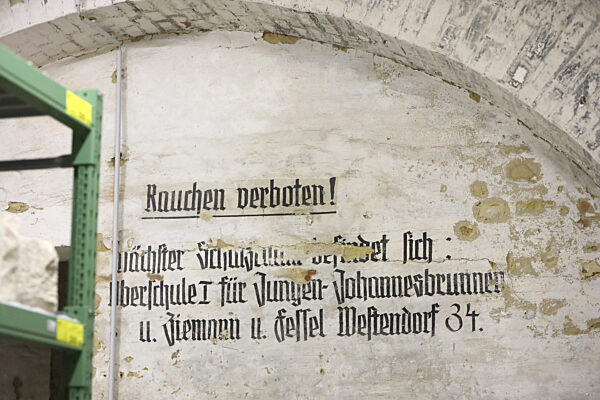 Rauchen verboten!
nächster Schutzraum befindet sich:
Oberschule I für Jungen-Johannesbrunnen
u. Ziemann u. Fessel Westendorf 84.